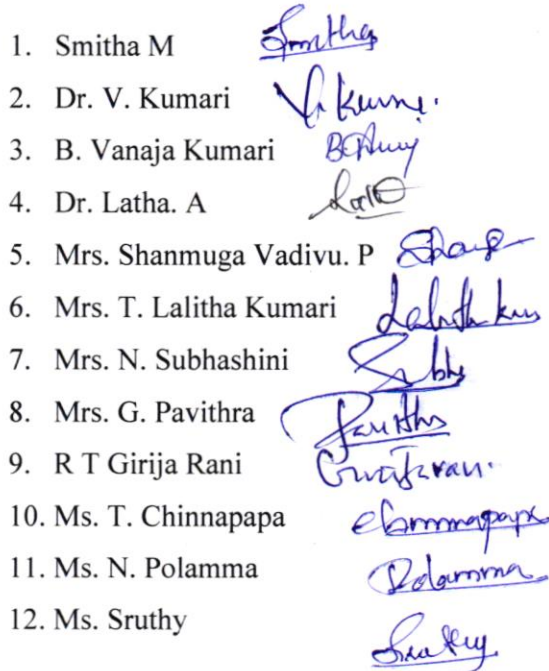 1. Smitha M Smitha
2. Dr. V. Kumari V. Kumari
3. B. Vanaja Kumari
4. Dr. Latha. A Latha
5. Mrs. Shanmuga Vadivu. P
6. Mrs. T. Lalitha Kumari
7. Mrs. N. Subhashini Subhs
8. Mrs. G. Pavithra
9. R T Girija Rani
10. Ms. T. Chinnapapa Chinnapapa
11. Ms. N. Polamma Polamma
12. Ms. Sruthy Sruthy